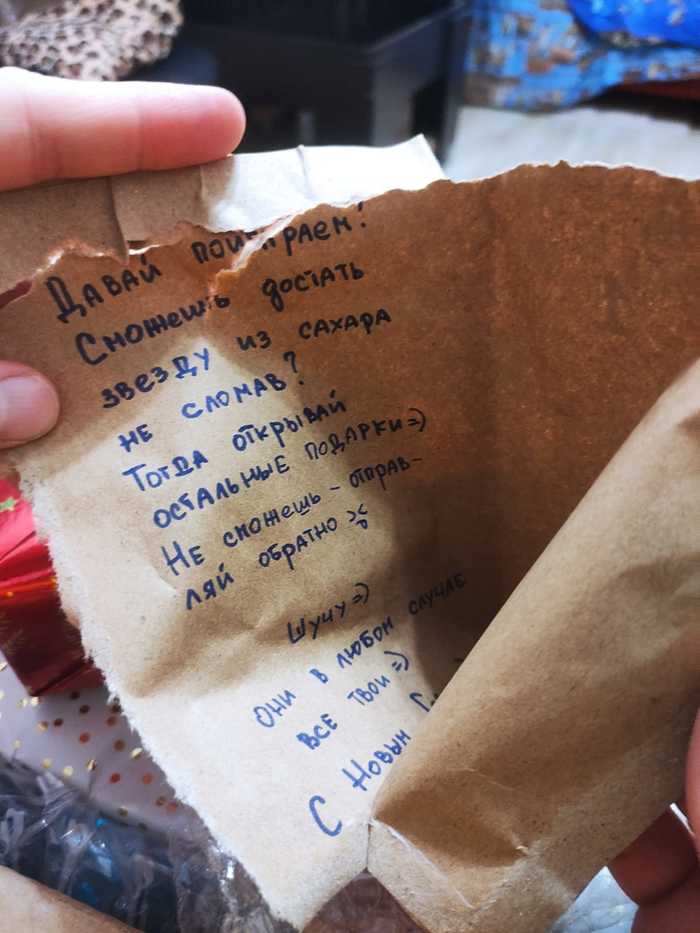 Давай поиграем!
Сможешь достать
звезду из сахара
не сломав?
Тогда открывай
остальные подарки=)
Не сможешь - отправ-
ляй обратно
Шучу=)
Они в любом случае
все твои=)
С Новым